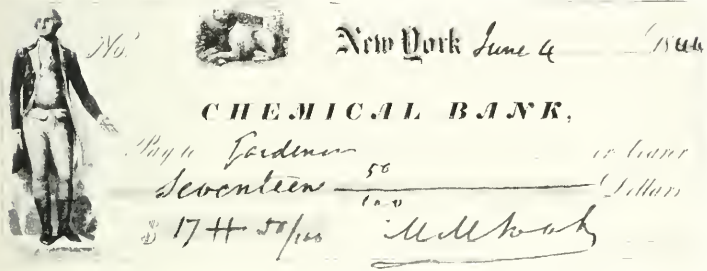 No. New York June 4 1844
CHEMICAL BANK,
Pay to Gardener or bearer
Seventeen 50/100 Dollars
$ 17 50/100